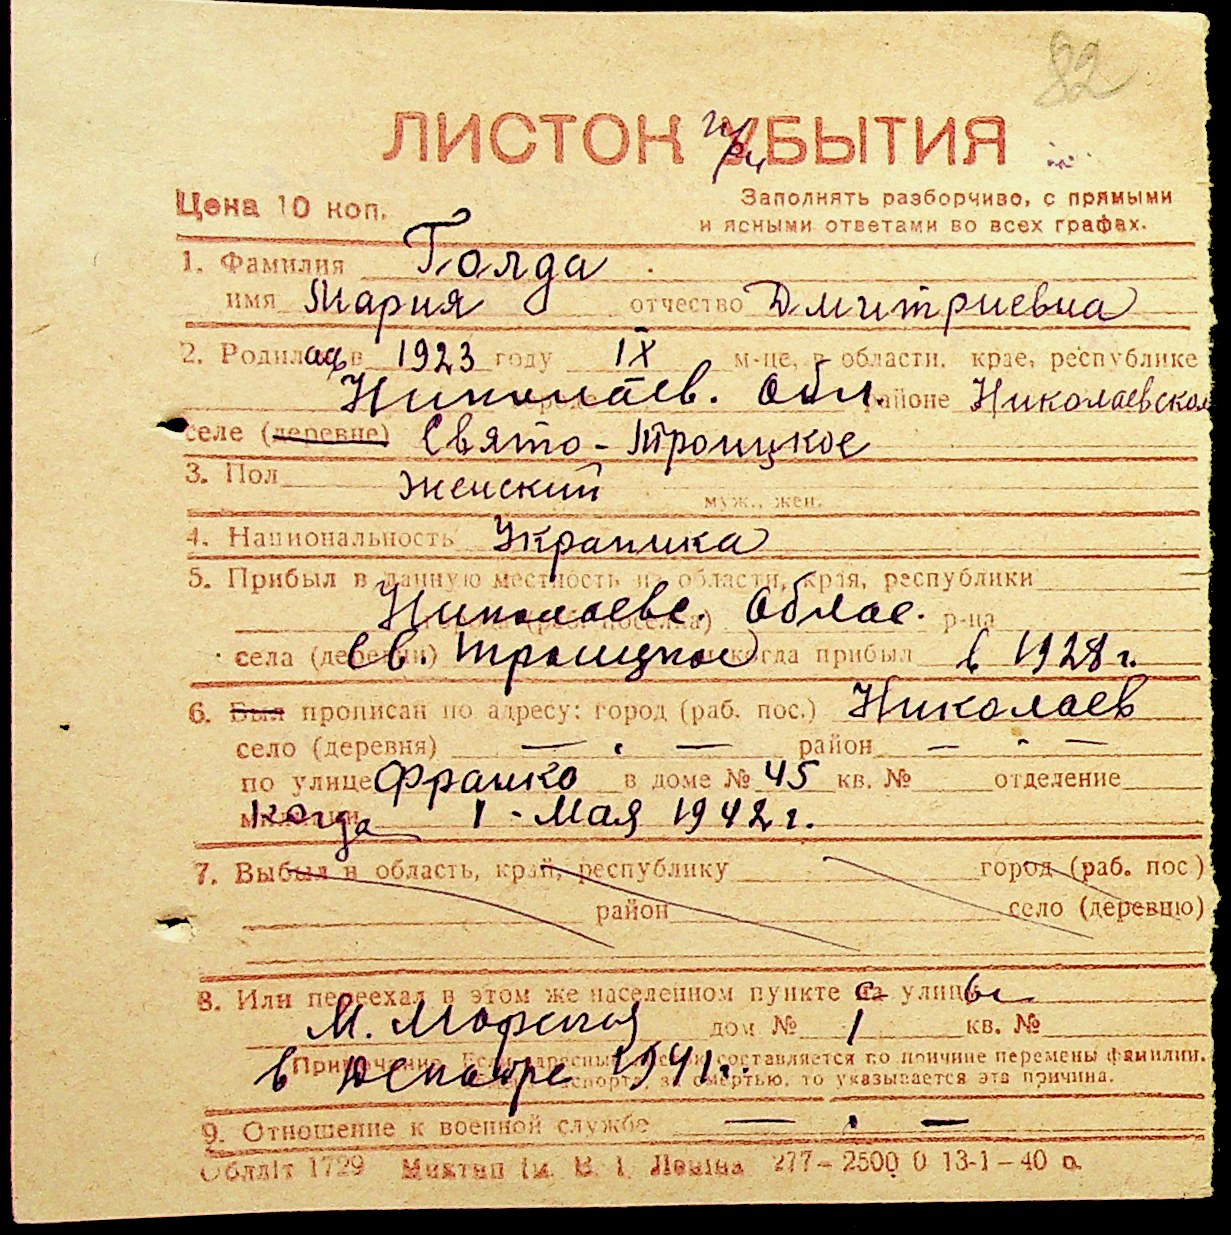 82
ЛИСТОК УБЫТИЯ
Цена 10 коп.
Заполнять разборчиво, с прямыми
и ясными ответами во всех графах.
1. Фамилия Голда
имя Мария отчество Дмитриевна
2. Родилась в 1923 году IX м-це, в области, крае, республике
Николаев. Обл. районе Николаевском
селе (деревне) Свято-Троицкое
3. Пол Женский муж., жен.
4. Национальность Украинка
5. Прибыл в данную местность из области, края, республики
Николаевс. Облас. р-на
села (деревни) Св. Троицкое и когда прибыл в 1928 г.
6. Был прописан по адресу: город (раб. пос.) Николаев
село (деревня) — . — район — . —
по улице Франко в доме № 45 кв. № отделение
милиции Когда 1 - Мая 1942 г.
7. Выбыл в область, край, республику город (раб. пос)
район село (деревню)
8. Или переехал в этом же населенном пункте с улицы
М. Морская дом № 1 кв. №
Примечание. Если адресный составляется по причине перемены фамилии,
в Декабре 1941 г. смертью, то указывается эта причина.
9. Отношение к военной службе — . —
Облліт 1729 Миктип ім. В. І. Леніна 277–2500 0 13-1–40 р.